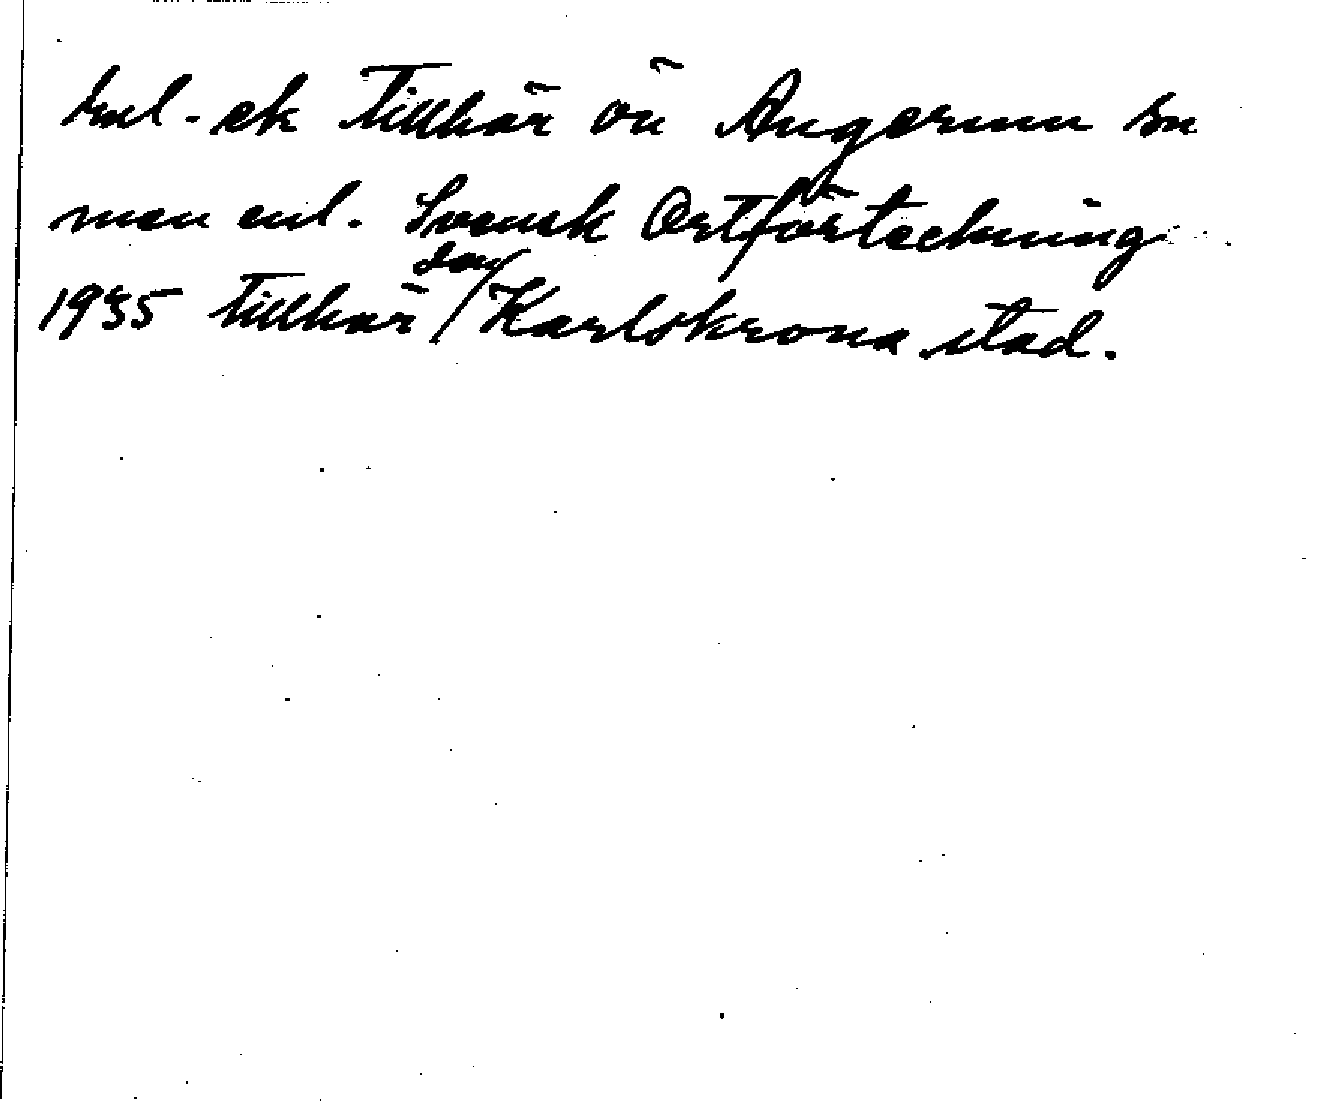 Enl. ek tillhör ön Augerum sn
men enl. Svensk Ortförteckning
1935 tillhör den Karlskrona stad.